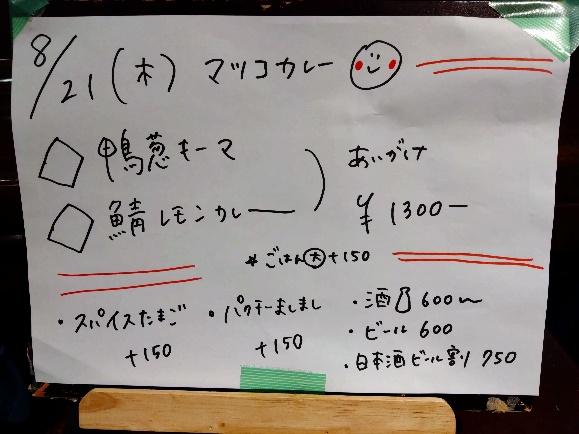 8/21(木) マツコカレー
鴨葱キーマ
鯖レモンカレー
あいがけ
¥1300ー
*ごはん大+150
・スパイスたまご
+150
・パクチーましまし
+150
・酒 600〜
・ビール 600
・日本酒ビール割り 750